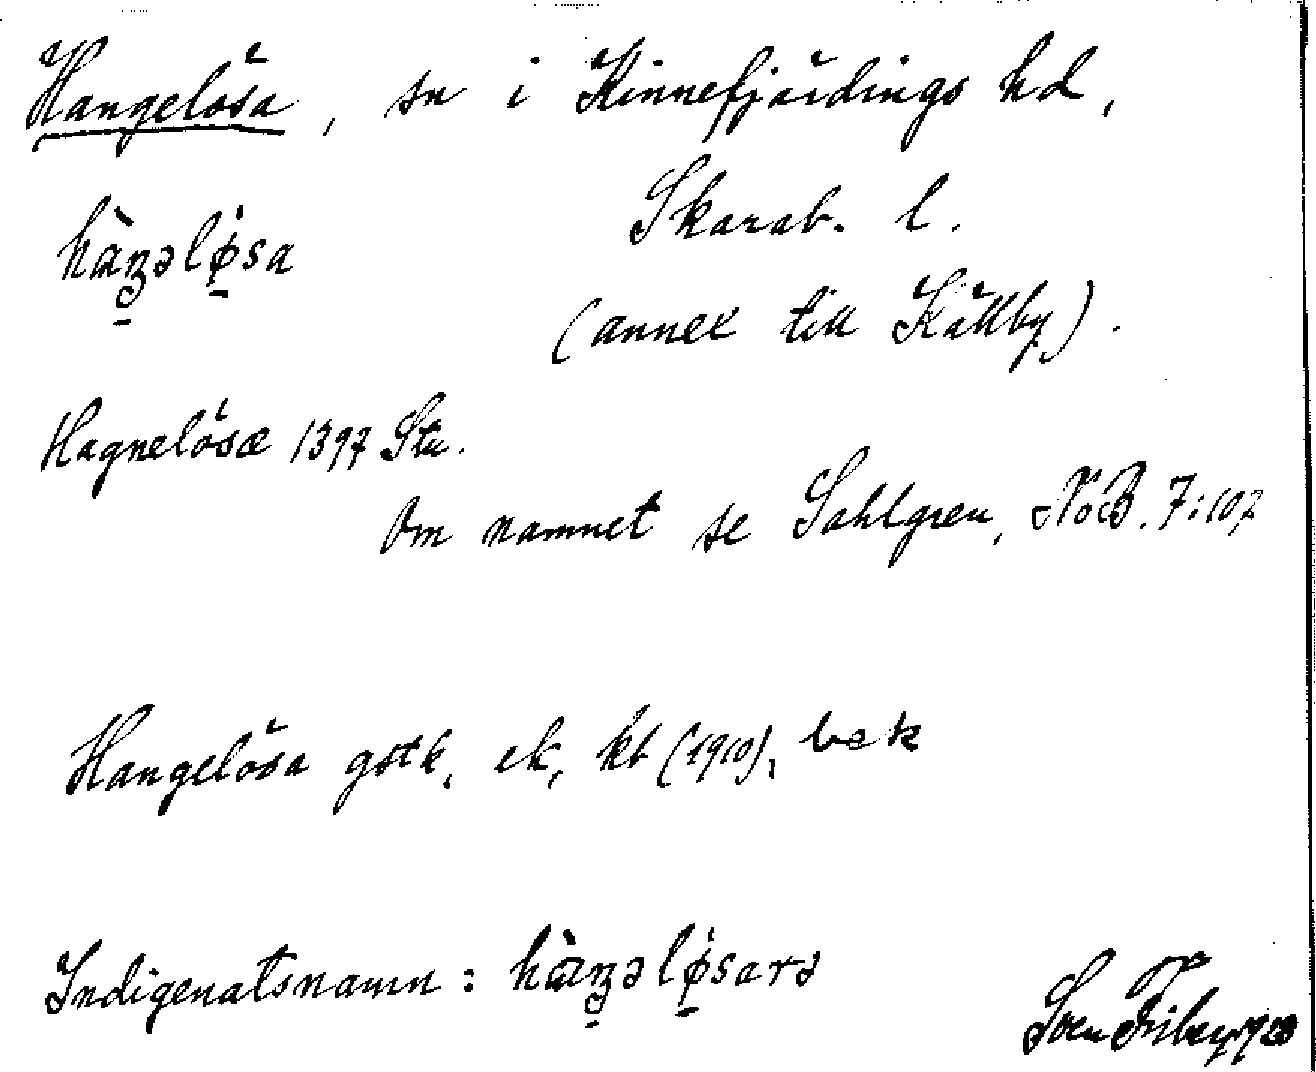 Hangelösa, sn i Kinnefjärdings hd,
Skarab. l.
hàŋəlø̀sa
(annex till Källby).
Hagnelösæ 1397 Stu.
Om namnet se Sahlgren, NoB. 7:107
Hangelösa gstk, ek, kb (1910), bek
Indigenatsnamn: hàŋəlø̀sarə
Sven Fiberg